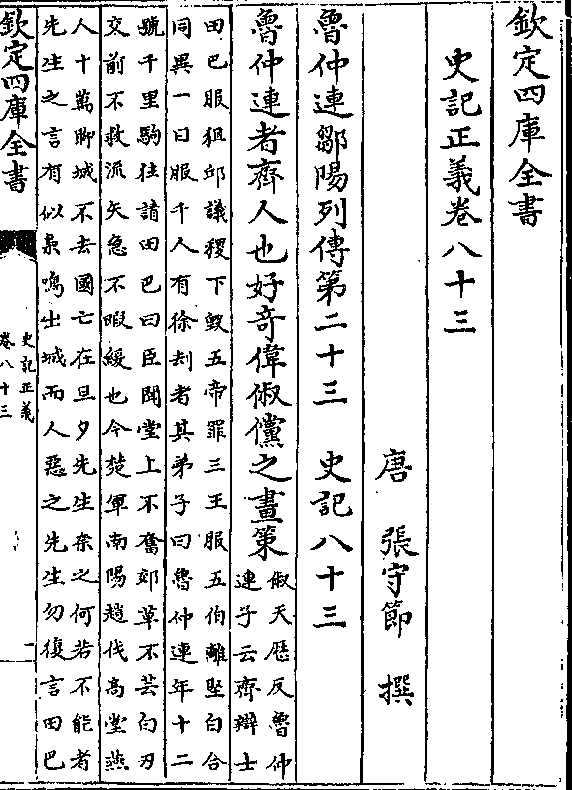 欽定四庫全書
史記正義卷八十三
唐 張守節 撰
魯仲連鄒陽列傳第二十三 史記八十三
魯仲連者齊人也好奇偉俶儻之畫策
俶天歴反魯仲
連子云齊辯士
田巴服狙邱議稷下毀五帝罪三王服五伯離堅白合
同異一日服千人有徐刦者其弟子曰魯仲連年十二
號千里駒往請田巴曰臣聞堂上不奮郊草不芸白刃
交前不救流矢急不暇緩也今楚軍南陽趙伐高堂燕
人十萬聊城不去國亡在旦夕先生柰之何若不能者
先生之言有似梟鳴出城而人惡之先生勿復言田巴
欽定四庫全書
史記正義
卷八十三
一